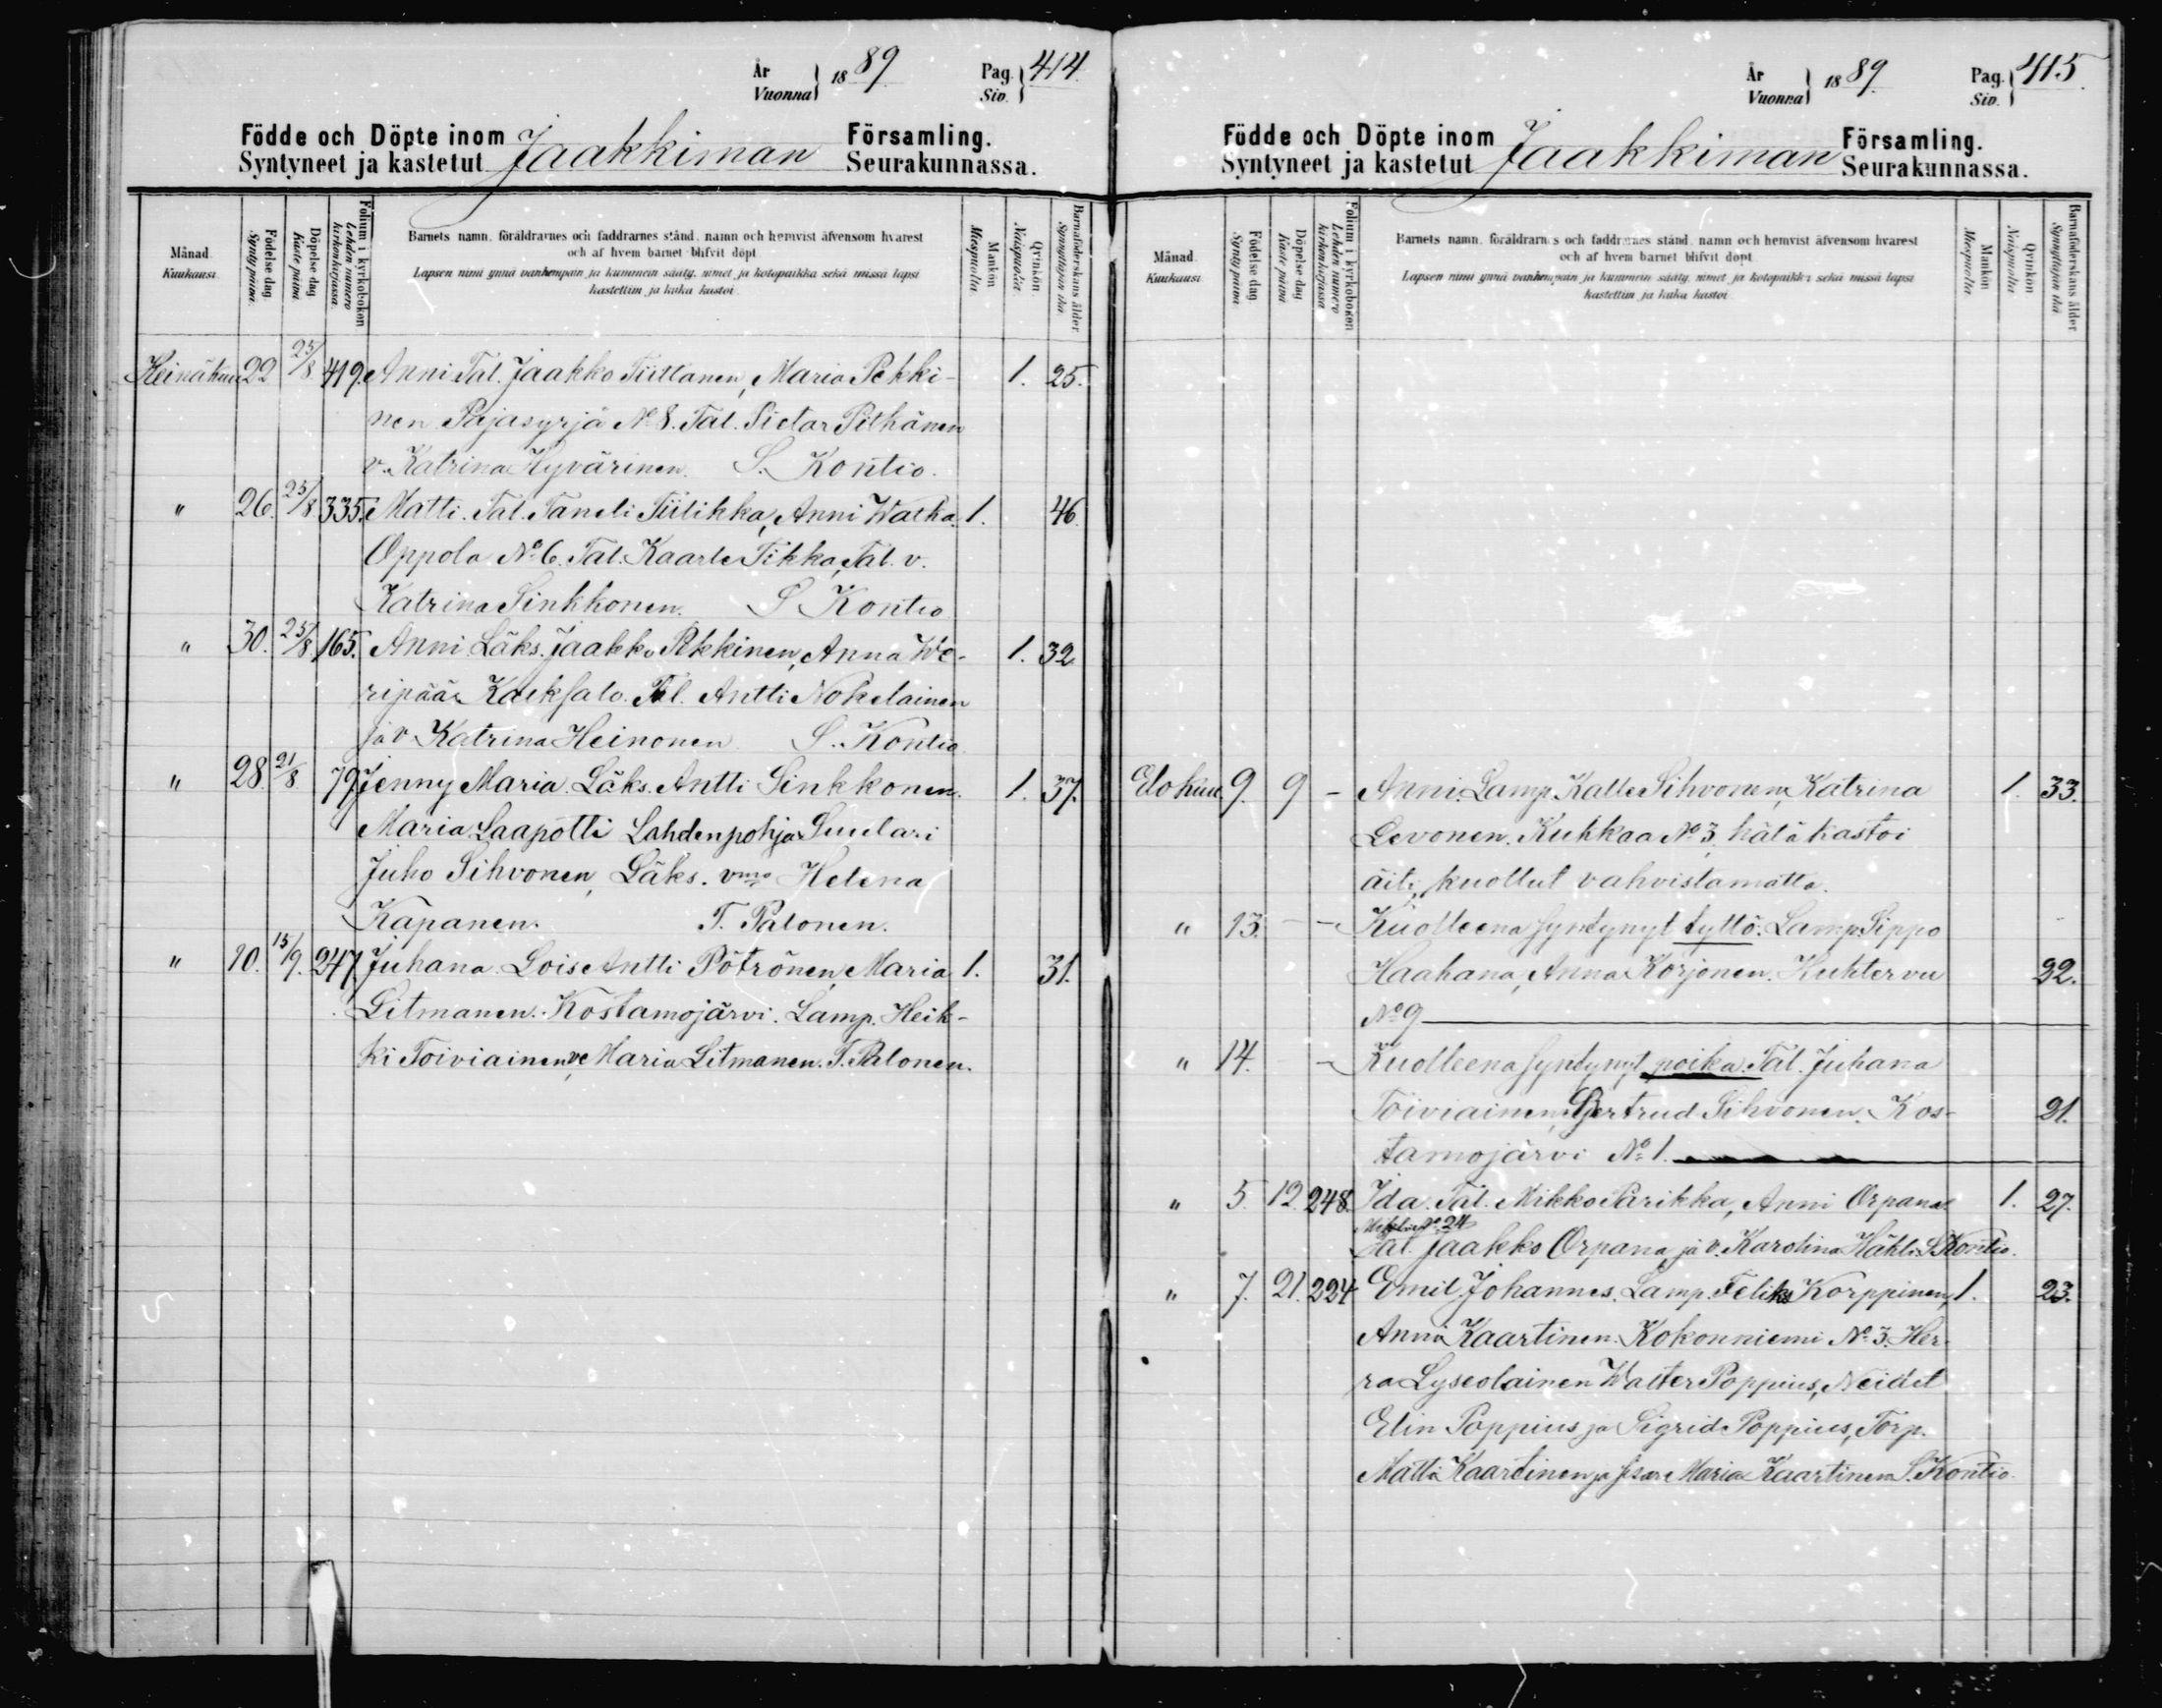 År
Vuonna } 18 89. Pag. Siv. } 414.
Födde och Döpte inom Jaakkiman Församling.
Syntyneet ja kastetut Seurakunnassa.
Månad Kuukausi
Födelse dag Synty päivä.
Döpelse dag Kaste päivä
Folium i kyrkoboken Lehden numero kirkonkirjassa.
Barnets namn, föräldrarnes och faddrarnes stånd, namn och hemvist äfvensom hvarest
och af hvem barnet blifvit döpt
Lapsen nimi ynnä vanhempain ja kummein sääty, nimet ja kotopaikka sekä missä lapsi
kastettiin ja kuka kastoi
Mankön Miespuolia.
Qvinkön Naispuolia
Barnaföderskans ålder Synnyttäjän ikä
Heinäkuu 22 25/8 419. Anni Tal. Jaakko Tiittanen, Maria Pekki- 1. 25.
nen Pajasyrjä No 8. Tal. Pietar Pitkänen
v. Katrina Hyvärinen. S. Kontio.
" 26. 25/8 335. Matti. Tal. Taneli Tiilikka, Anni Watka. 1. 46.
Oppola No 6. Tal. Kaarle Tikka, Tal. v.
Katrina Sinkkonen. S Kontio
" 30. 25/8 165. Anni Läks. Jaakko Pekkinen, Anna We- 1. 32.
ripää, Kaeksalo. Tal. Antti Nokelainen
ja v Katrina Heinonen S. Kontio
" 28. 21/8 79 Jenny Maria. Läks. Antti Sinkkonen. 1. 37.
Maria Laapotti Lahdenpohja Suutari
Juho Sihvonen, Läks. vmo Helena
Kapanen. T. Palonen.
" 10. 15/9. 247. Juhana Lois Antti Pötrönen, Maria 1. 31.
Litmanen. Kostamojärvi. Lamp. Heik-
ki Toiviainen, Maria Litmanen. T. Palonen.
År
Vuonna } 18 89. Pag. Siv. } 415.
Födde och Döpte inom Jaakkiman Församling.
Syntyneet ja kastetut Seurakunnassa.
Månad Kuukausi
Födelse dag Synty päivä
Döpelse dag Kaste päivä
Folium i kyrkoboken Lehden numero kirkonkirjassa
Barnets namn, föräldrarnes och faddrarnes stånd, namn och hemvist äfvensom hvarest
och af hvem barnet blifvit döpt
Lapsen nimi ynnä vanhempain ja kummein sääty, nimet ja kotopaikka sekä missä lapsi
kastettiin ja kuka kastoi
Mankön Miespuolia
Qvinkön Naispuolia
Barnaföderskans ålder Synnyttäjän ikä
Elokuu. 9. 9 - Anni. Lamp. Kalle Sihvonen, Katrina 1. 33.
Levonen. Kuhkaa No 3. hätäkastoi
äiti, kuollut vahvistamatta.
" 13. - - Kuolleena syntynyt tyttö. Lamp. Sippo
Haahana, Anna Korjonen. Kuhtervu 22.
No 9
" 14. - Kuolleena syntynyt poika. Tal. Juhana
Toiviainen, Gertrud Sihvonen. Kos- 21.
tamojärvi No 1.
" 5. 12. 248. Ida. Tal. Mikko Parikka, Anni Orpana. 1. 27.
No 24
Tal. Jaakko Orpana ja v. Karolina Hähli. S. Kontio.
" 7. 21. 224 Emil Johannes. Lamp. Feliks Korppinen, 1. 23.
Anna Kaartinen. Kokonniemi No 3. Her-
ra Lyseolainen Walter Poppius, Neidet
Elin Poppius ja Sigrid Poppius, Torp.
Matti Kaartinen ja sisar Maria Kaartinen. S. Kontio.